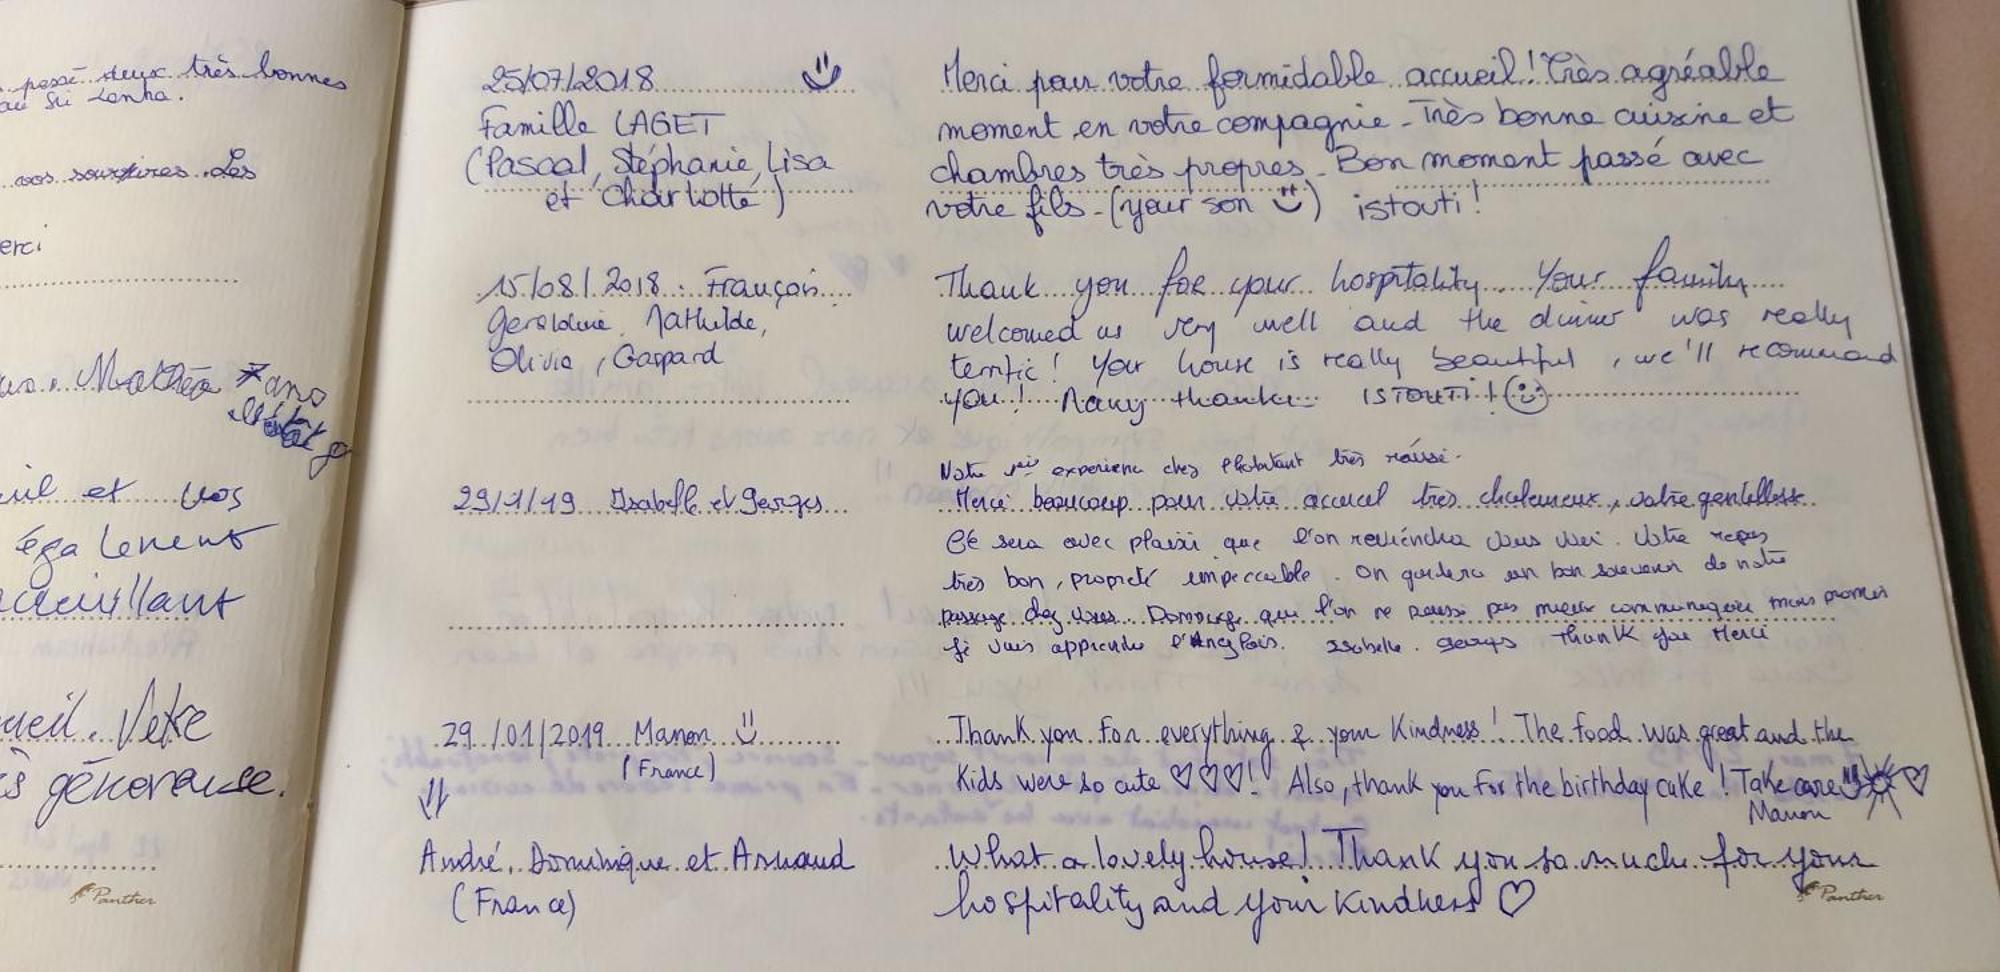 passé deux très bonnes
au Sri Lanka.
vos sourires. Les
erci
Mathéa 7 ans
et vos
également
accueillant
ueil. Votre
s généreuse.
Panther
25/07/2018
Famille LAGET
(Pascal, Stéphanie, Lisa
et Charlotte)
Merci pour votre formidable accueil! Très agréable
moment en votre compagnie - Très bonne cuisine et
chambres très propres - Bon moment passé avec
votre fils - (your son ) istouti!
15/08/2018. François
Geraldine, Mathilde,
Olivia, Gaspard
Thank you for your hospitality. Your family
welcomed us very well and the dinner was really
terrific! Your house is really beautiful, we'll recommand
you! Many thanks ISTOUTI!
29/1/19 Isabelle et Georges
Notre experience chez l'habitant très réussie.
Merci beaucoup pour votre accueil très chaleureux, votre gentillesse
Ce sera avec plaisir que l'on reviendra vous voir. Votre repas
très bon, propreté impeccable. On gardera un bon souvenir de notre
passage chez vous. Dommage que l'on ne puisse pas mieux communiquer mais promis
je vais apprendre l'Anglais. Isabelle. Georges Thank you Merci
29/01/2019 Manon
(France)
Thank you for everything & your Kindness! The food was great and the
Kids were so cute ♡♡♡! Also, thank you for the birthday cake! Take care ♡
Manon
André, Dominique et Arnaud
(France)
What a lovely house! Thank you so much for your
hospitality and your Kindness ♡
Panther